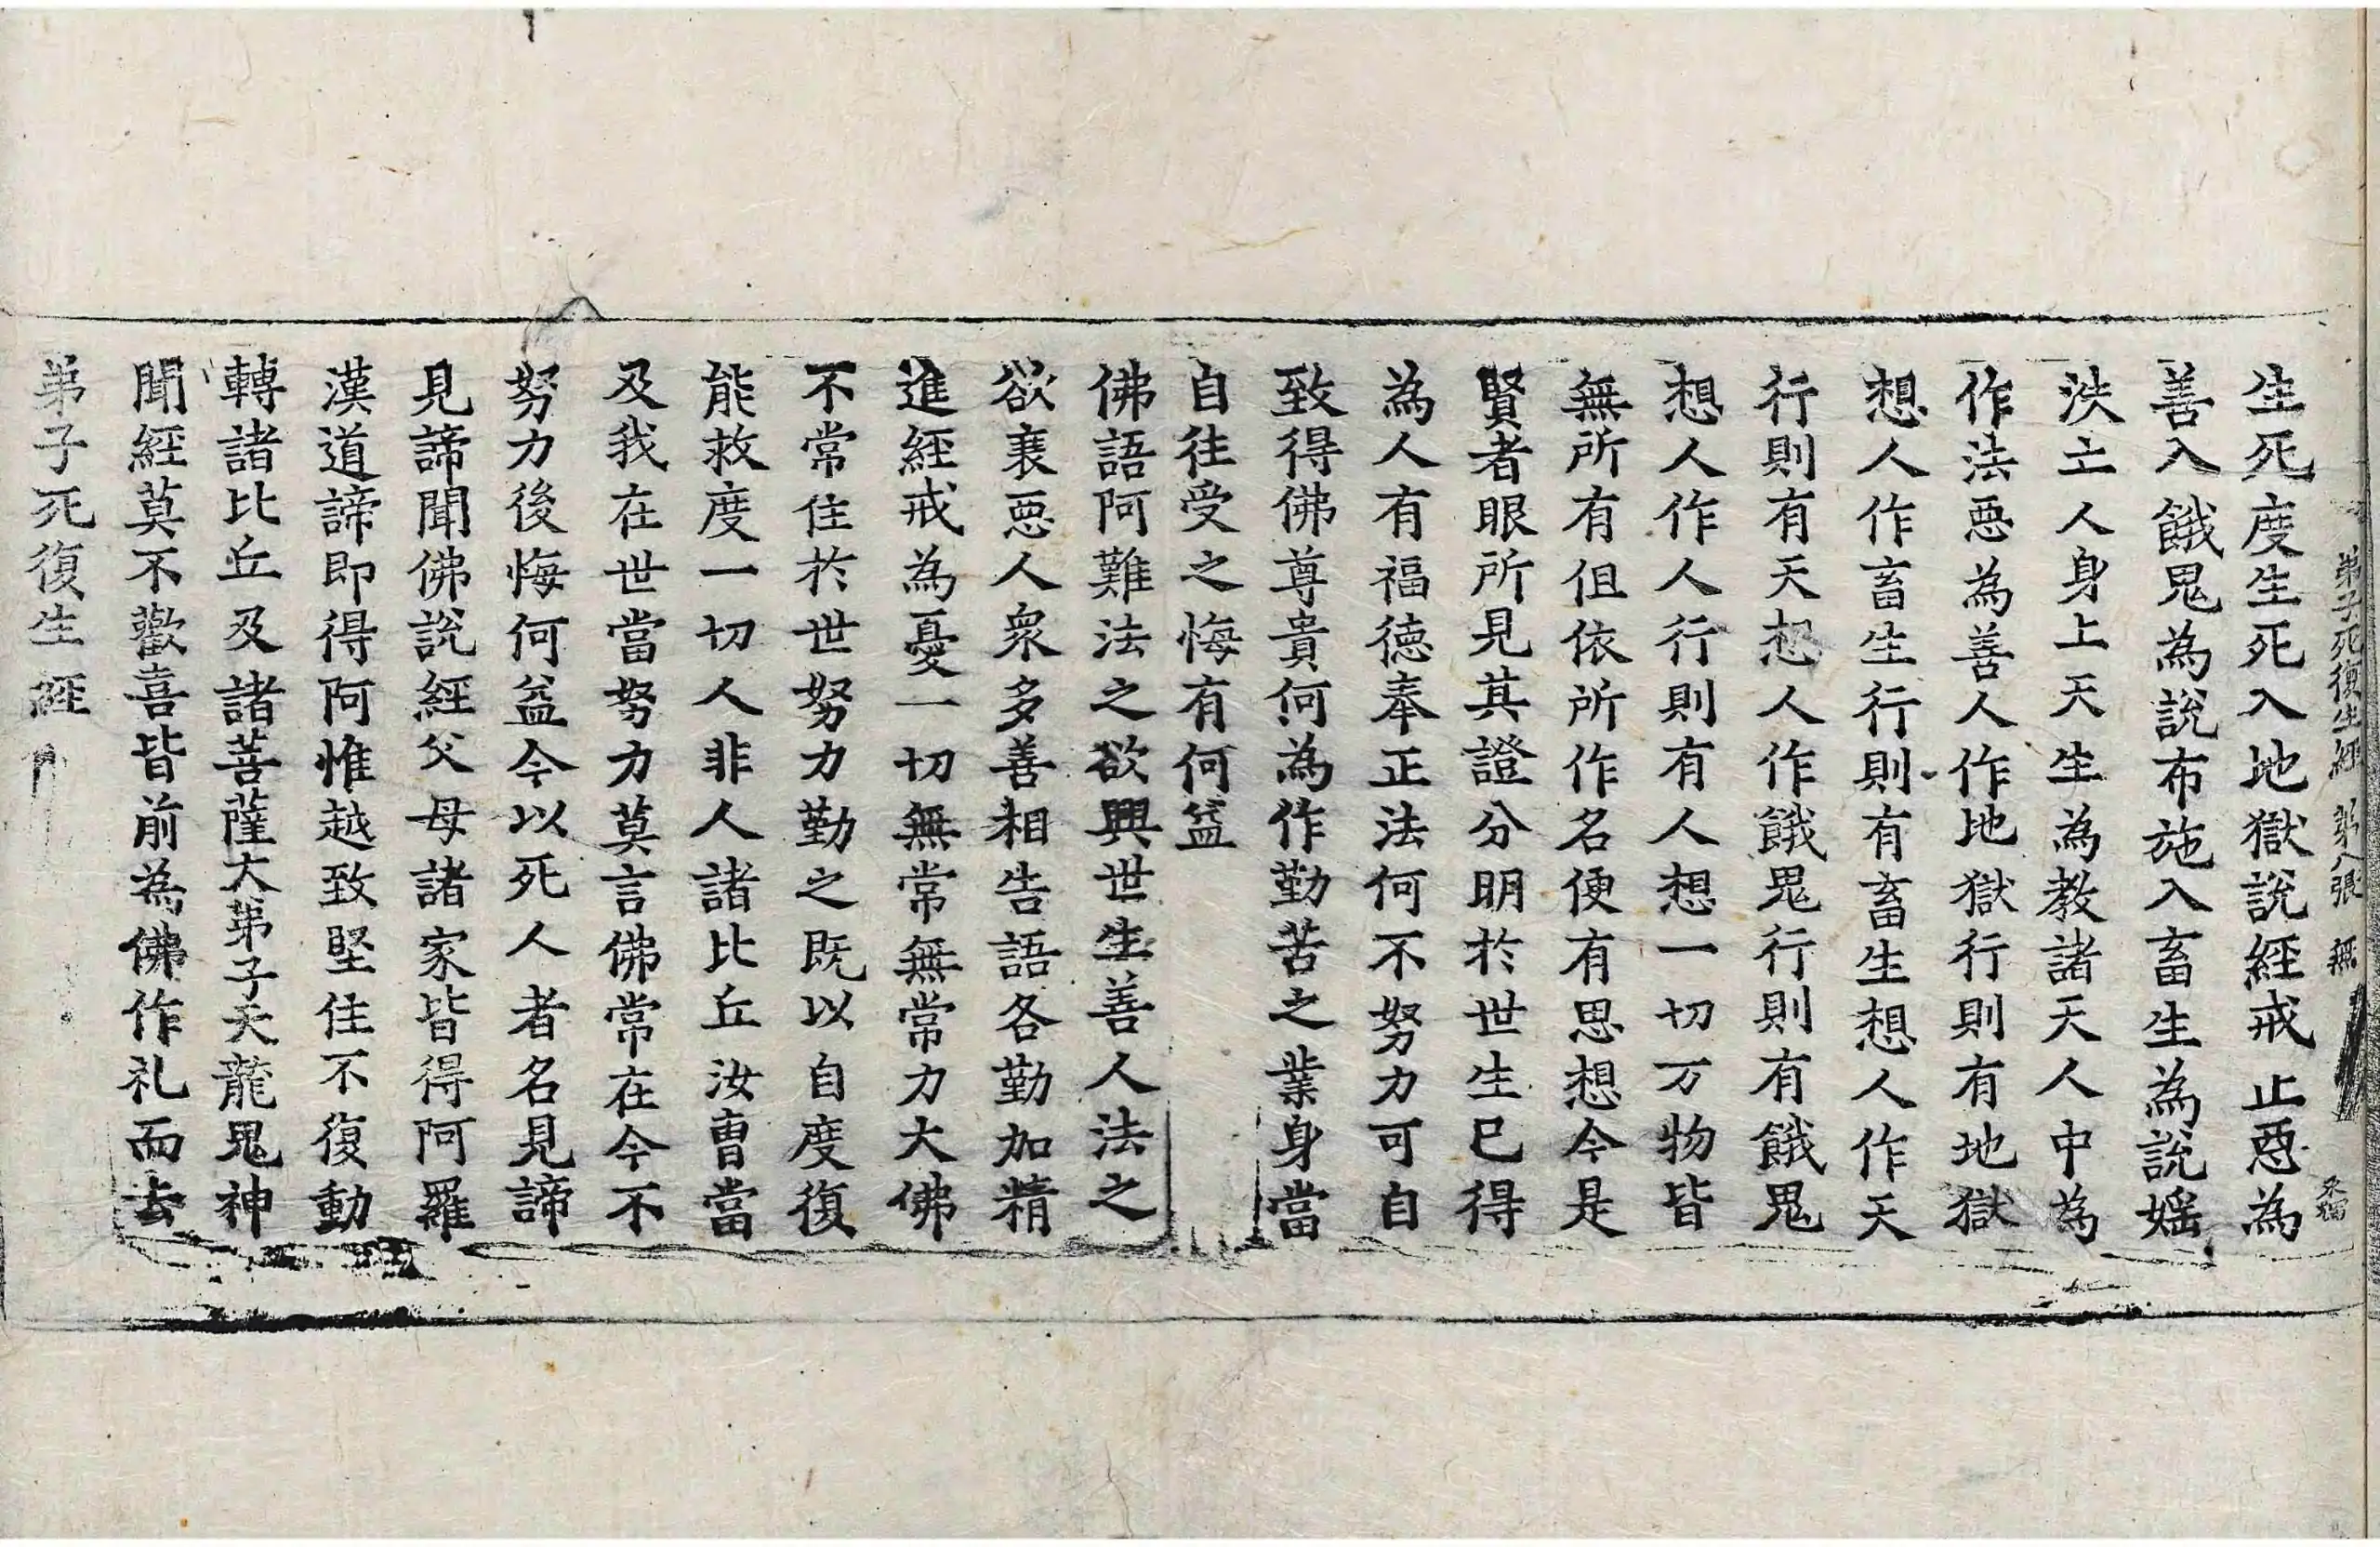 弟子死復生經 第八張 無
生死度生死入地獄說經戒止惡為
善入餓鬼為說布施入畜生為說婬
泆立人身上天生為教諸天人中為
作法惡為善人作地獄行則有地獄
想人作畜生行則有畜生想人作天
行則有天想人作餓鬼行則有餓鬼
想人作人行則有人想一切万物皆
無所有但依所作名便有思想今是
賢者眼所見其證分明於世生已得
為人有福德奉正法何不努力可自
致得佛尊貴何為作勤苦之業身當
自往受之悔有何益
佛語阿難法之欲興世生善人法之
欲衰惡人衆多善相告語各勤加精
進經戒為憂一切無常無常力大佛
不常住於世努力勤之既以自度復
能救度一切人非人諸比丘汝曹當
及我在世當努力莫言佛常在今不
努力後悔何益今以死人者名見諦
見諦聞佛說經父母諸家皆得阿羅
漢道諦即得阿惟越致堅住不復動
轉諸比丘及諸菩薩大弟子天龍鬼神
聞經莫不歡喜皆前為佛作礼而去
弟子死復生經